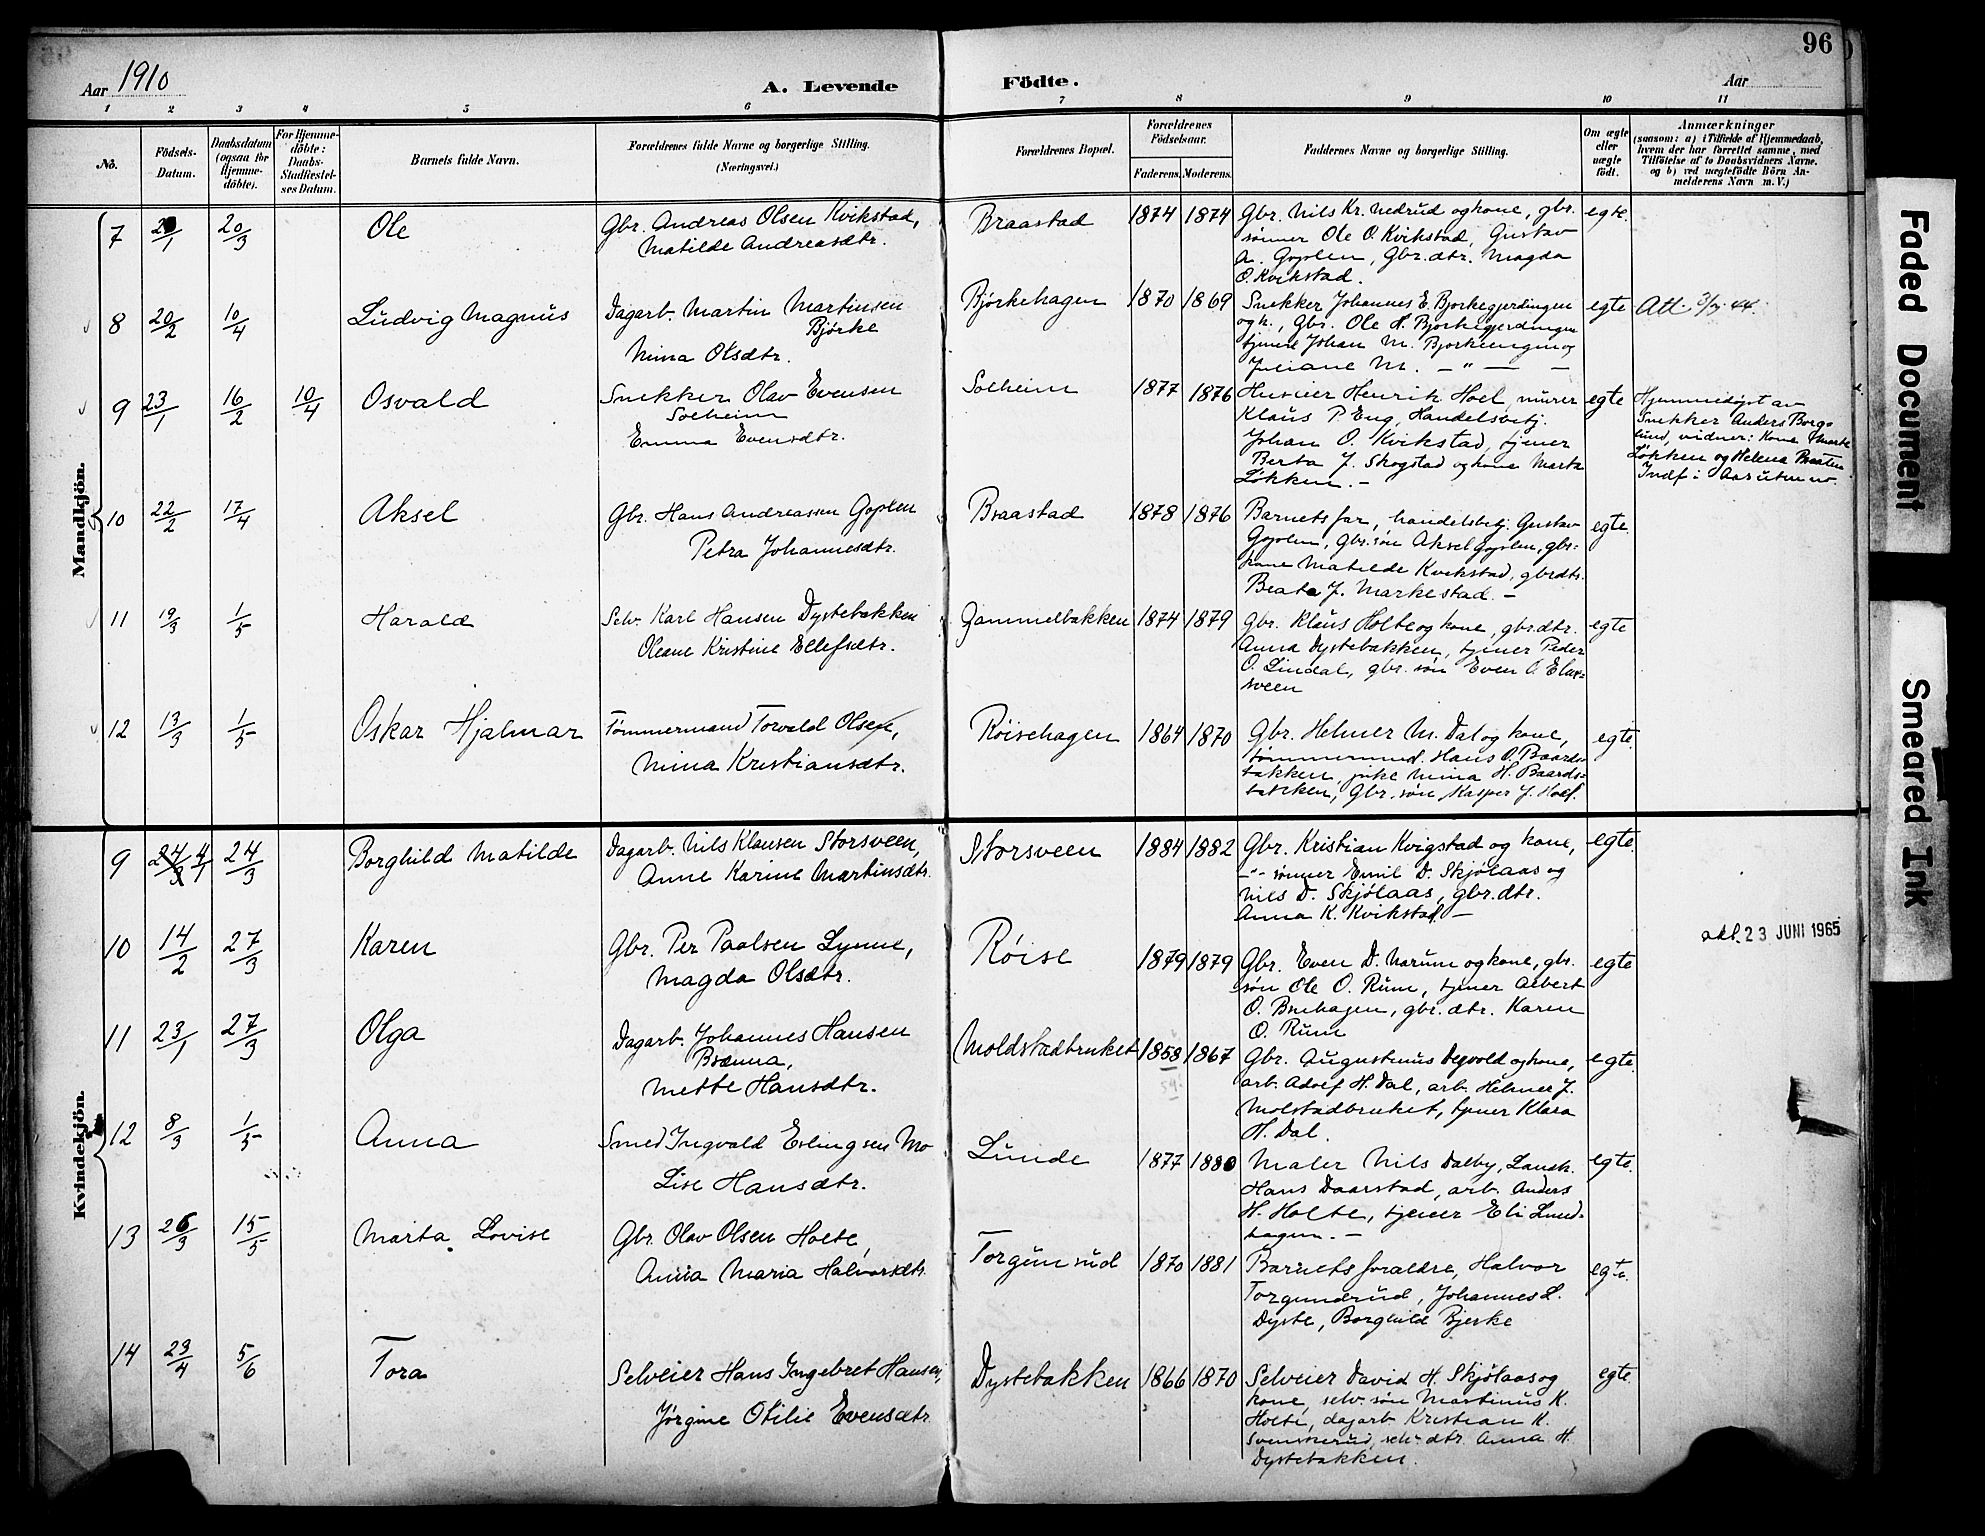 96
Aar 1910
A. Levende
Födte.
Aar
1 2 3 4 5 6 7 8 9 10 11
No.
Födsels-Datum.
Daabsdatum (ogsaa for Hjemme-döbte).
For Hjemme-döbte: Daabs-Stadfæstel-ses Datum.
Barnets fulde Navn.
Forældrenes fulde Navne og borgerlige Stilling. (Næringsvei.)
Forældrenes Bopæl.
Forældrenes Födselsaar.
Faderens. Moderens.
Faddernes Navne og borgerlige Stilling.
Om ægte eller uægte födt.
Anmærkninger
(saasom: a) i Tilfælde af Hjemmedaab,
hvem der har forrettet samme, med
Tilföielse af to Daabsvidners Navne.
og b) ved uægtefödte Börn An-
melderens Navn m. V.)
Mandkjön.
7 2/1 20/3 Ole
Gbr. Andreas Olsen Kvikstad,
Matilde Andreasdtr.
Braastad 1874 1874
Gbr. Nils Kr. Nedrud og kone, gbr.
sönner Ole O. Kvikstad, Gustav
A. Goplen, Gbr. dtr. Magda
O. Kvikstad.
egte.
8 20/2 10/4 Ludvig Magnus
Dagarb. Martin Martinsen
Bjørke
Nina Olsdtr.
Bjørkehagen 1870 1869
Snekker Johannes E. Bjorkegjerdingen
og k., Gbr. Ole H. Bjorkegjerdingen
tjener Johan M. Bjorkeengen og
Juliane M. — " — —
egte Att 3/7 44.
9 23/1 16/2 10/4 Osvald
Snekker Olav Evensen
Solheim
Emma Evensdtr.
Solheim 1877 1876
Huseier Henrik Hoel, murer
Klaus P. Eng, Handelsbetj.
Johan O. Kvikstad, tjener
Berta J. Skogstad og kone Marta
Løkken. -
egte
Hjemmedøpt av
Snekker Anders Borge
lund, vidner: Kone Marte
Løkken og Helena Braaten
10 22/2 17/4 Aksel
Gbr. Hans Andreassen Goplen
Petra Johannesdtr.
Braastad 1878 1876
Barnets far, handelsbetj. Gustav
Goplen, Gbr. søn Aksel Goplen, gbr=
kone Matilde Kvikstad, gbrdtr.
Beata J. Markestad. -
egte.
11 19/3 1/5 Harald
Selv. Karl Hansen Dystebakken
Oleane Kristine Ellefsdtr.
Gammelbakken 1874 1879
Gbr. Klaus Holte og kone, gbrdtr.
Anna Dystebakken, tjener Peder
O. Lindal, gbr. søn Even O. Elus=
sveen
egte
12 13/3 1/5 Oskar Hjalmar
Tømmermand Torvald Olsen,
Nina Kristiansdtr.
Røisehagen 1864 1870
Gbr. Helmer M. Dal og kone,
tømmermd. Hans O. Baards=
bakken, pike Nina H. Baards=
bakken, Gbr. søn Kasper J. Hoel.
egte.
Kvindekjön.
9 24/3 4/1 24/3 Borghild Matilde
Dagarb. Nils Klausen Storsveen,
Anne Karine Martinsdtr.
Storsveen 1884 1882
Gbr. Kristian Kvigstad og kone,
-"- sønner Emil D. Skjølaas og
Nils D. Skjølaas, gbr. dtr.
Anna K. Kvikstad. —
egte.
10 14/2 27/3 Karen
Gbr. Per Paalsen Lynne,
Magda Olsdtr.
Røise 1879 1879
Gbr. Even D. Narum og kone, gbr.
søn Ole O. Rum, tjener Albert
O. Brehagen, gbr. dtr. Karen
O. Rum
egte
akt. 23 JUNI 1965
11 23/1 27/3 Olga
Dagarb. Johannes Hansen
Brænna,
Mette Hansdtr.
Moldstadbruket 1858 1867
Gbr. Augustinus Degvold og kone,
arb. Adolf H. Dal, arb. Helmer J.
Molstadbruket, tjener Klara
H. Dal.
egte.
12 8/3 1/5 Anna
Smed Ingvald Erlingsen Mo
Lise Hansdtr.
Lunde 1877 1880
Maler Nils Dalby, Landh.
Hans Daarstad, arb. Anders
H. Holte, tjener Eli Lund-
hagen. —
egte.
13 26/3 15/5 Marta Lovise
Gbr. Olav Olsen Holte,
Anna Maria Halvorsdtr.
Torgunrud 1870 1881
Barnets foraeldre, Halvor
Torgunderud, Johannes L.
Dyste, Borghild Bjerke
egte.
14 23/4 5/6 Tora
Selveier Hans Ingebret Hansen,
Jørgine Otilie Evensdtr.
Dystebakken 1866 1870
Selveier David H. Skjølaas og
kone, selv. søn Martinus K.
Holte, dagarb. Kristian K.
Svenskerud, selv. dtr. Anna H.
Dystebakken.
egte.
Faded Document
Smeared Ink